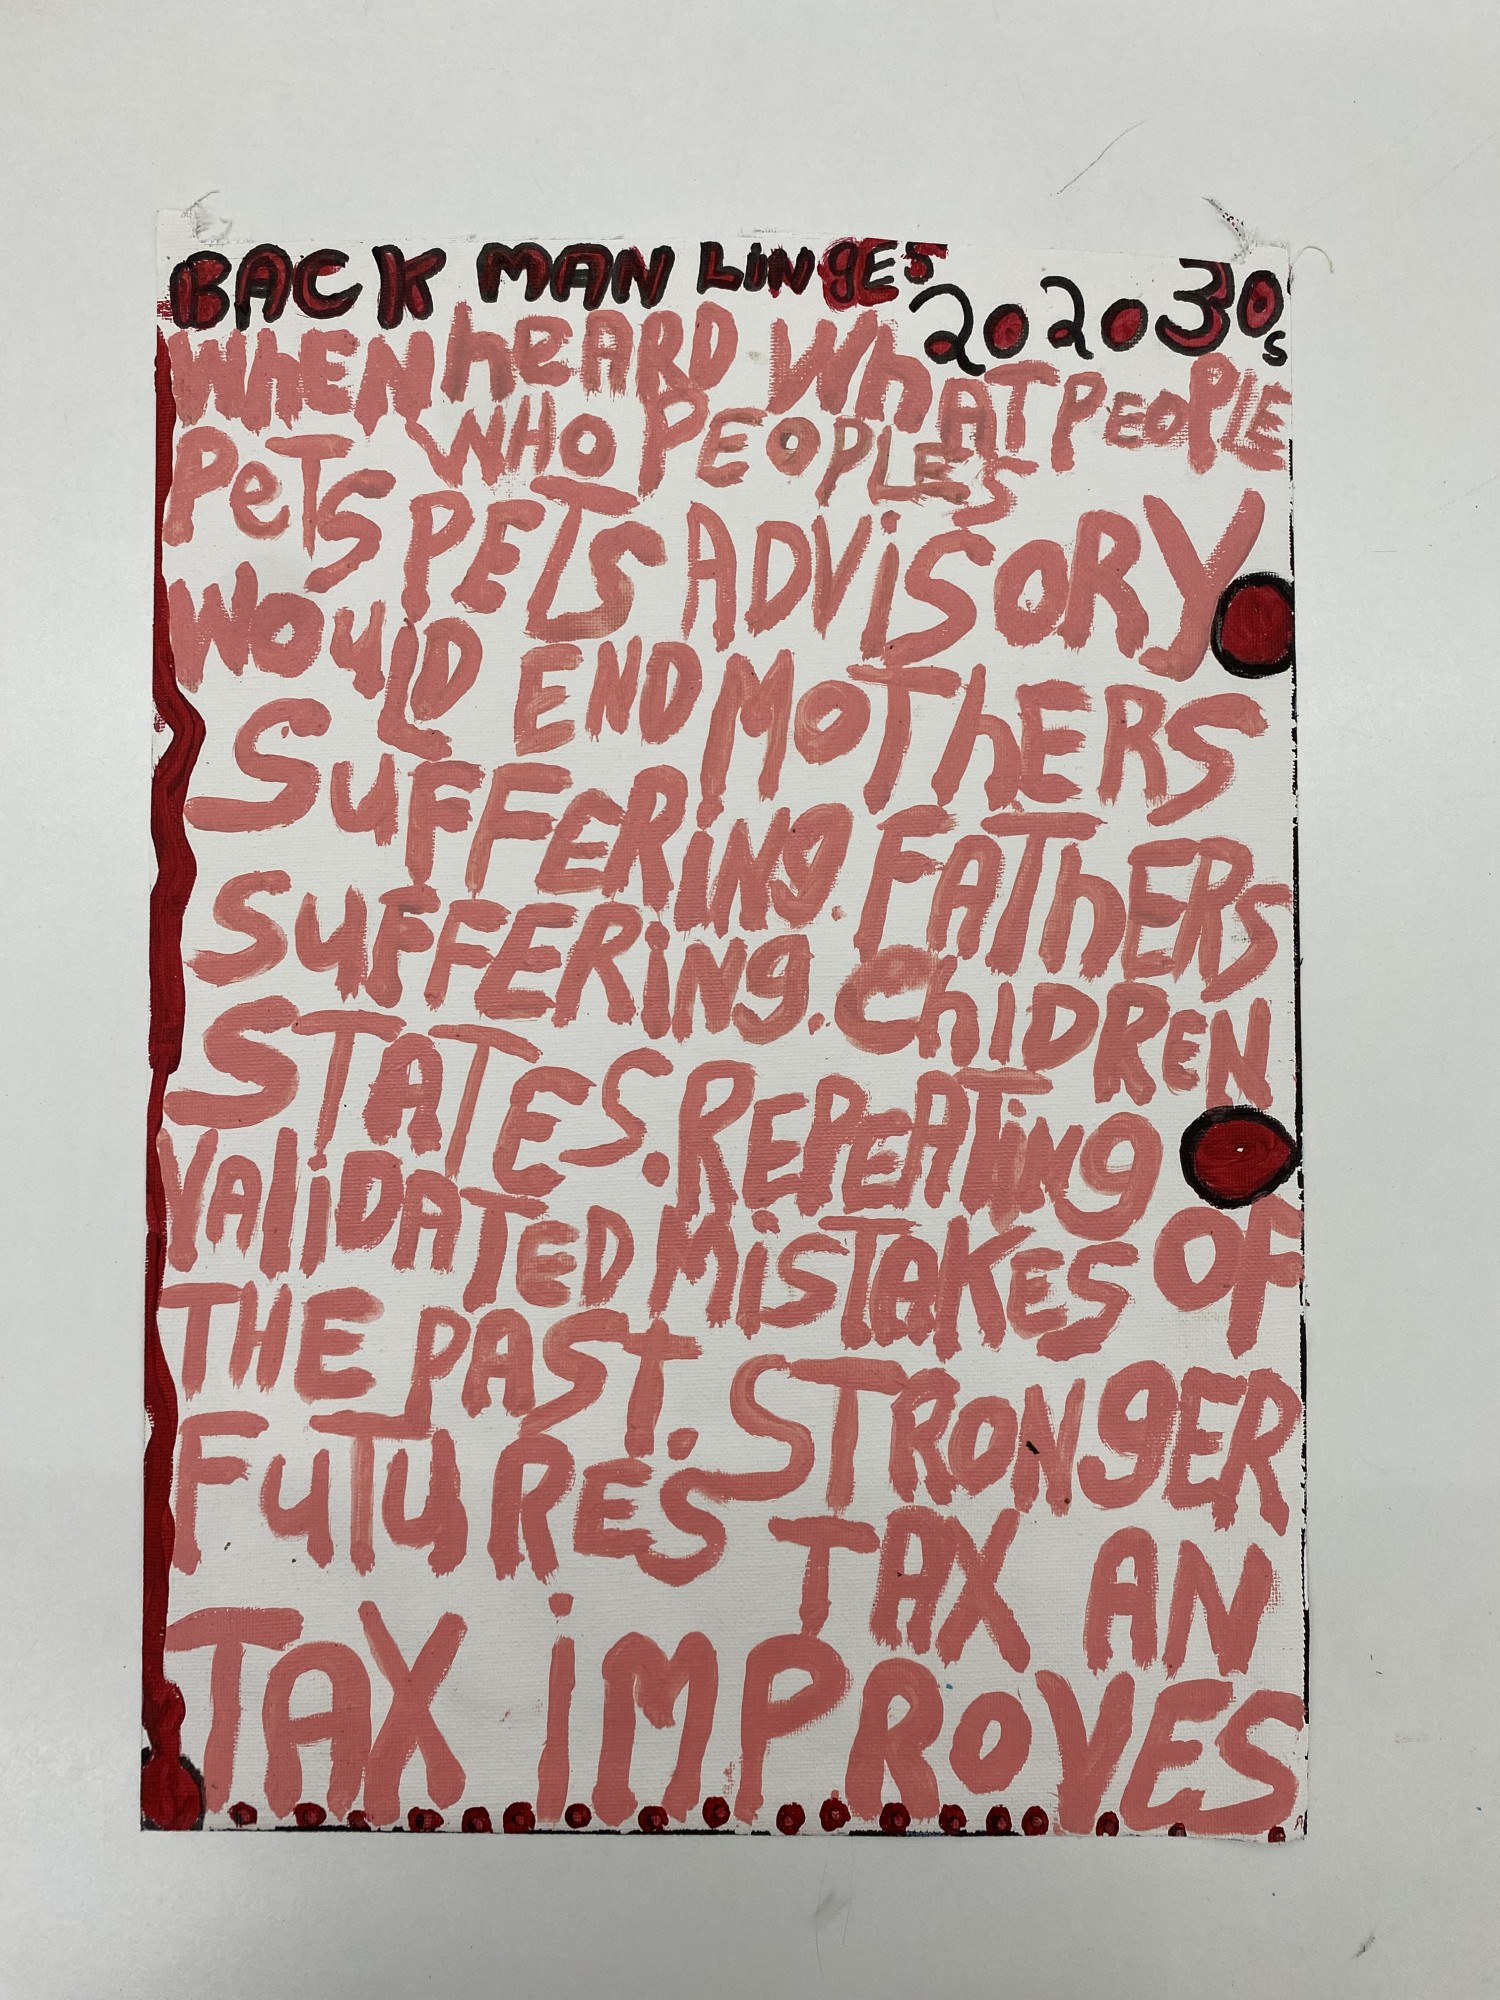 BACK MAN LiNgES 202030s
WhEN heARD WhAT PEOPLE
PeTS WHO PEOPLE'S
PETS ADViSORY
WOuLD END MOThERS
SuFFERiNg. FAThERS
SuFFERiNg. ChIDREN
STATES. REPEATiNg
VAliDATED MiSTAKES OF
THE PAST. STRONgER
FuTuRES TAX AN
TAX iMPROVES